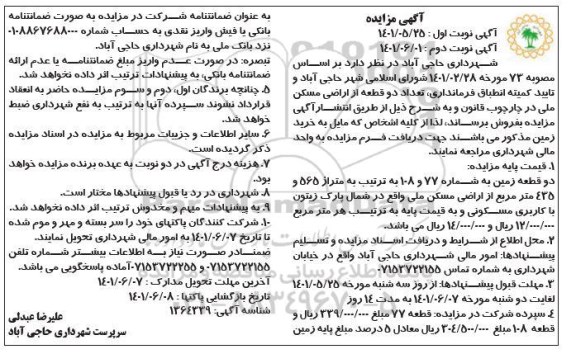 آگهی مزایده
آگهی نوبت اول : ۱۴۰۱/۰۵/۲۵
آگهی نوبت دوم : ۱۴۰۱/۰۶/۰۱
شــهرداری حاجی آباد در نظر دارد بر اســاس
مصوبه ۷۳ مورخه ۱۴۰۱/۰۲/۲۸ شورای اسلامی شهر حاجی آباد و
تایید کمیته انطباق فرمانداری، تعداد دو قطعه از اراضی مسکن
ملی در چارچوب قانون و به شــرح ذیل از طریق انتشــار آگهی
مزایده بفروش برساند، لذا از کلیه اشخاص که مایل به خرید
زمین مذکور می باشــند جهت دریافت فــرم مزایده به واحد
مالی شهرداری مراجعه نمایند.
۱. قیمت پایه مزایده:
دو قطعه زمین به شــماره ۷۷ و ۱۰۸ به ترتیب به متراژ ۵۶۵ و
۴۳۵ متر مربع از اراضی مسکن ملی واقع در شمال پارک زیتون
با کاربری مســکونی و به قیمت پایه به ترتیــب هر متر مربع
۱۲/۰۰۰/۰۰۰ ریال و ۱۴/۰۰۰/۰۰۰ ریال می باشد.
۲. محل اطلاع از شــرایط و دریافت اســناد مزایده و تســلیم
پیشــنهادها: امور مالی شــهرداری حاجی آباد واقع در خیابان
شهرداری به شماره تماس ۰۷۱۵۳۷۲۲۱۵۵
۳. مهلت قبول پیشــنهادها: از روز سه شنبه مورخه ۱۴۰۱/۰۵/۲۵
لغایت دو شنبه مورخه ۱۴۰۱/۰۶/۰۷ به مدت ۱۴ روز
۴. سپرده شرکت در مزایده: قطعه ۷۷ مبلغ ۳۳۹/۰۰۰/۰۰۰ ریال و
قطعه ۱۰۸ مبلغ ۳۰۴/۵۰۰/۰۰۰ ریال معادل ۵ درصد مبلغ پایه زمین
به عنوان ضمانتنامه شــرکت در مزایده به صورت ضمانتنامه
بانکی یا فیش واریز نقدی به حســاب شماره ۰۱۰۸۸۶۷۶۸۸۰۰۰
نزد بانک ملی به نام شهرداری حاجی آباد.
تبصره: در صورت عــدم واریز مبلغ ضمانتنامــه یا عدم ارائه
ضمانتنامه بانکی، به پیشنهادات ترتیب اثر داده نخواهد شد.
۵. چنانچه برندگان اول، دوم و ســوم مزایــده حاضر به انعقاد
قرارداد نشوند سپرده آنها به ترتیب به نفع شهرداری ضبط
خواهد شد.
۶. سایر اطلاعات و جزییات مربوط به مزایده در اسناد مزایده
ذکر گردیده است.
۷. هزینه درج آگهی در دو نوبت به عهده برنده مزایده خواهد
بود.
۸. شهرداری در رد یا قبول پیشنهادها مختار است.
۹. به پیشنهادات مبهم و مخدوش ترتیب اثر داده نخواهد شد.
۱۰. شرکت کنندگان پاکتهای خود را سر بسته و مهر و موم شده
تا تاریخ ۱۴۰۱/۰۶/۰۷ به امور مالی شهرداری تحویل نمایند.
ضمنــا در صورت نیاز بــه اطلاعات بیشــتر شــماره تلفن
۰۷۱۵۳۷۲۲۱۵۵ و ۰۷۱۵۳۷۲۳۱۵۵ آماده پاسخگویی می باشد.
آخرین مهلت تحویل مدارک : ۱۴۰۱/۰۶/۰۷
تاریخ بازگشایی پاکتها : ۱۴۰۱/۰۶/۰۸
شناسه آگهی: ۱۳۶۴۳۳۹
علیرضا عبدلی
سرپرست شهرداری حاجی آباد